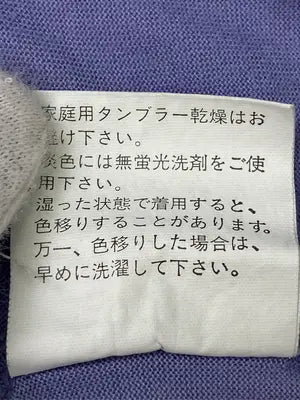 家庭用タンブラー乾燥はお
避け下さい。
淡色には無蛍光洗剤をご使
用下さい。
湿った状態で着用すると、
色移りすることがあります。
万一、色移りした場合は、
早めに洗濯して下さい。